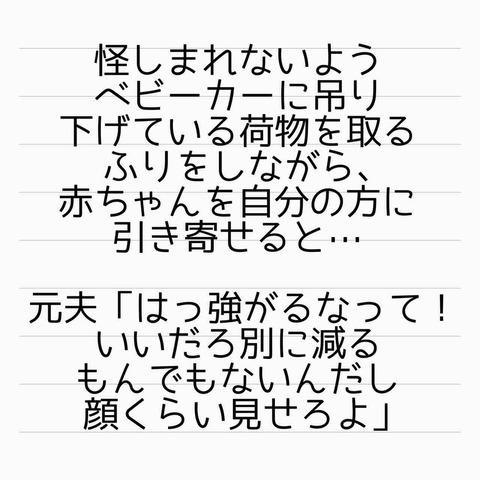 怪しまれないよう
ベビーカーに吊り
下げている荷物を取る
ふりをしながら、
赤ちゃんを自分の方に
引き寄せると…
元夫「はっ強がるなって！
いいだろ別に減る
もんでもないんだし
顔くらい見せろよ」